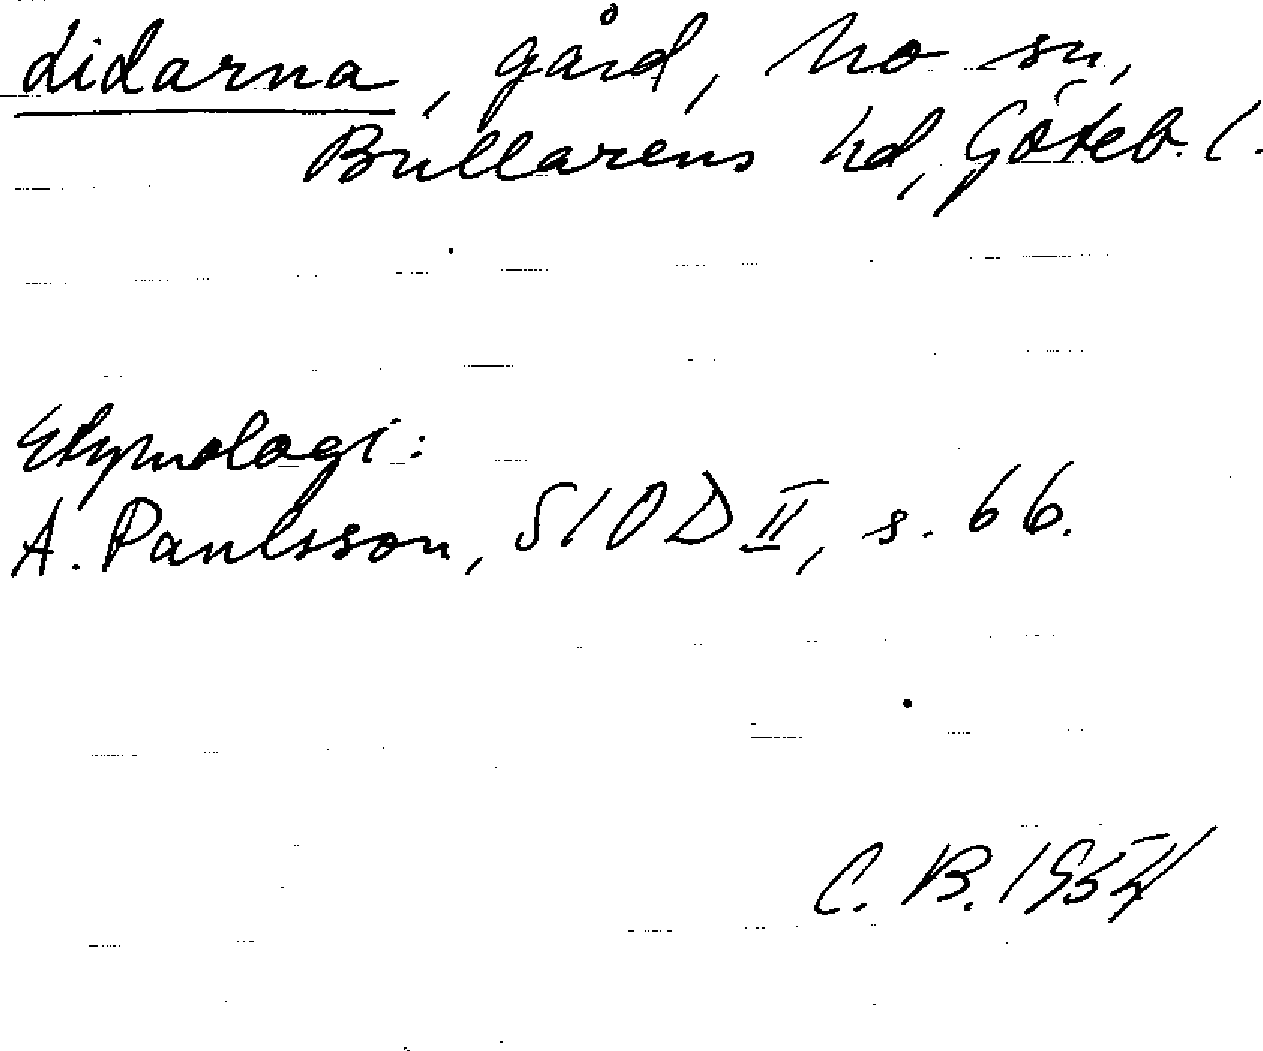 Lidarna, gård, Mo sn,
Bullarens hd, Göteb. l.
Etymologi:
A. Paulsson, SIOD II, s. 66.
C. B. 1954